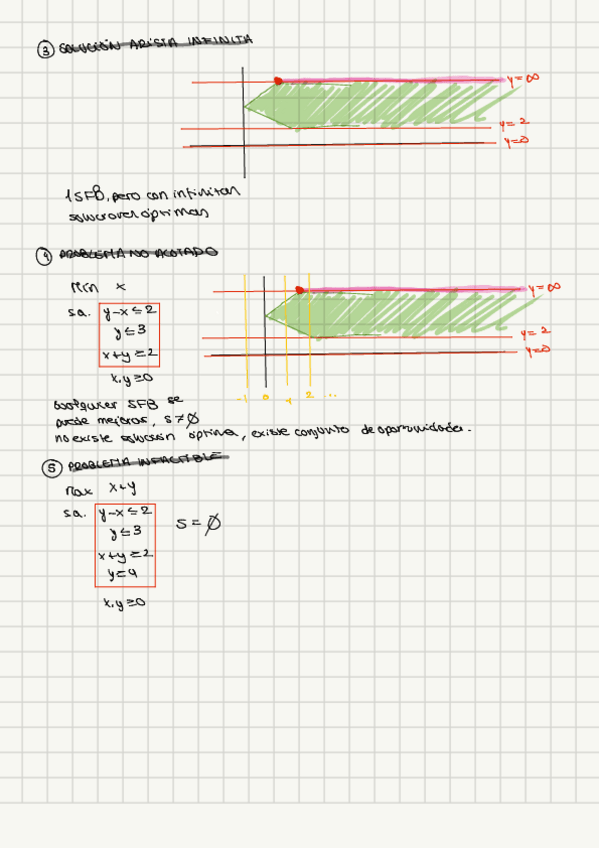 3 SOLUCIÓN ARISTA INFINITA
y=∞
y=2
y=0
1 SFB, pero con infinitas
soluciones óptimas
4 PROBLEMA NO ACOTADO
Min x
s.a. y-x≤2
y≤3
x+y≥2
x,y≥0
y=∞
y=2
y=0
-1 0 1 2 ...
Cualquier SFB se
puede mejorar, S≠∅
no existe solución óptima, existe conjunto de oportunidades.
5 PROBLEMA INFACTIBLE
Max x+y
s.a. y-x≤2
y≤3
x+y≥2
y=4
x,y≥0
S=∅